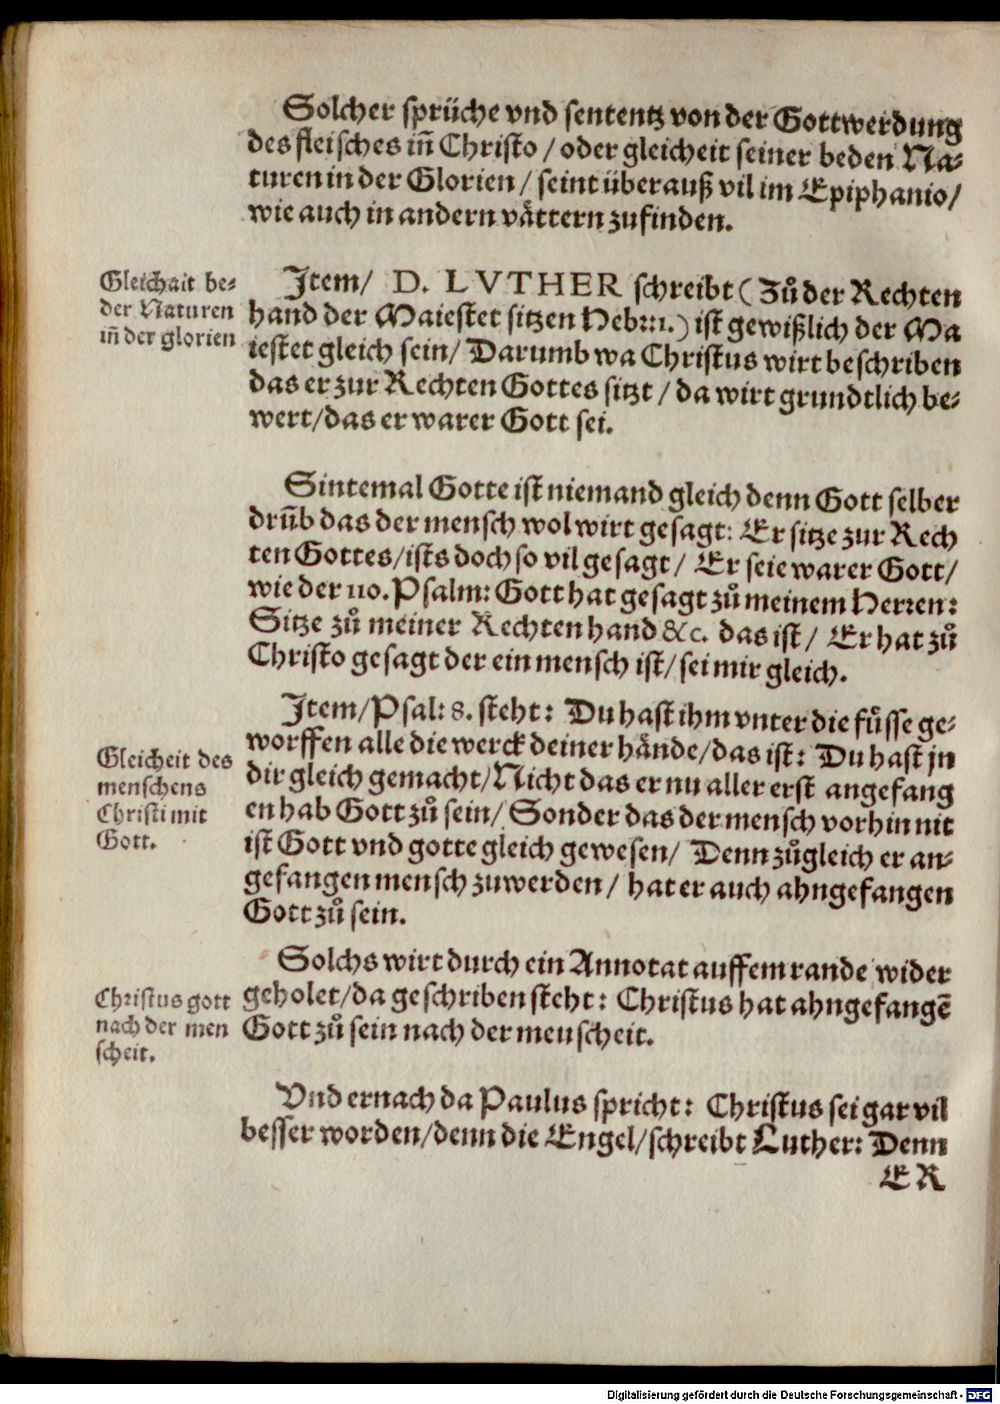 Solcher sprüche vnd sententz von der Gottwerdung
des fleisches in̄ Christo / oder gleicheit seiner beden Na⸗
turen in der Glorien / seint überauß vil im Epiphanio /
wie auch in andern vaͤttern zufinden.
Gleichait be⸗
der Naturen
in̄ der glorien
Item / D. LVTHER schreibt (Zuͦ der Rechten
hand der Maiestet sitzen Hebr: 1.) ist gewißlich der Ma
iestet gleich sein / Darumb wa Christus wirt beschriben
das er zur Rechten Gottes sitzt / da wirt grundtlich be⸗
wert / das er warer Gott sei.
Sintemal Gotte ist niemand gleich denn Gott selber
drūb das der mensch wol wirt gesagt: Er sitze zur Rech
ten Gottes / ists doch so vil gesagt / Er seie warer Gott /
wie der 110. Psalm: Gott hat gesagt zuͦ meinem Herren:
Sitze zuͦ meiner Rechten hand &c. das ist / Er hat zuͦ
Christo gesagt der ein mensch ist / sei mir gleich.
Item / Psal: 8. steht: Du hast ihm vnter die fuͤsse ge⸗
worffen alle die werck deiner hände / das ist: Du hast jn
dir gleich gemacht / Nicht das er nu aller erst angefang
en hab Gott zuͦ sein / Sonder das der mensch vorhin nit
ist Gott vnd gotte gleich gewesen / Denn zuͦgleich er an⸗
gefangen mensch zuwerden / hat er auch ahngefangen
Gott zuͦ sein.
Gleicheit des
menschens
Christi mit
Gott.
Solchs wirt durch ein Annotat auffem rande wider
geholet / da geschriben steht: Christus hat ahngefangē
Gott zuͦ sein nach der menscheit.
Christus gott
nach der men
scheit.
Vnd ernach da Paulus spricht: Christus sei gar vil
besser worden / denn die Engel / schreibt Luther: Denn
ER
Digitalisierung gefördert durch die Deutsche Forschungsgemeinschaft - DFG